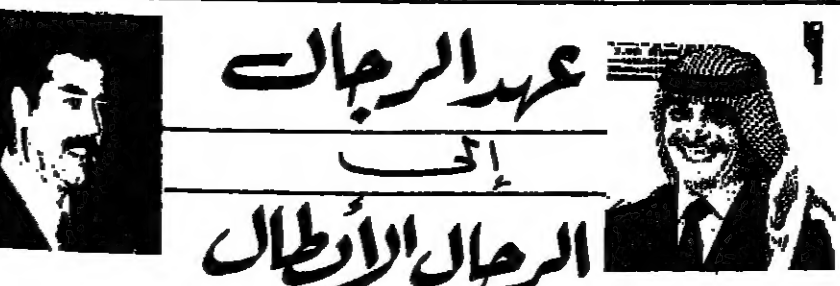 عهد الرجال
إلى
الرجال الأبطال